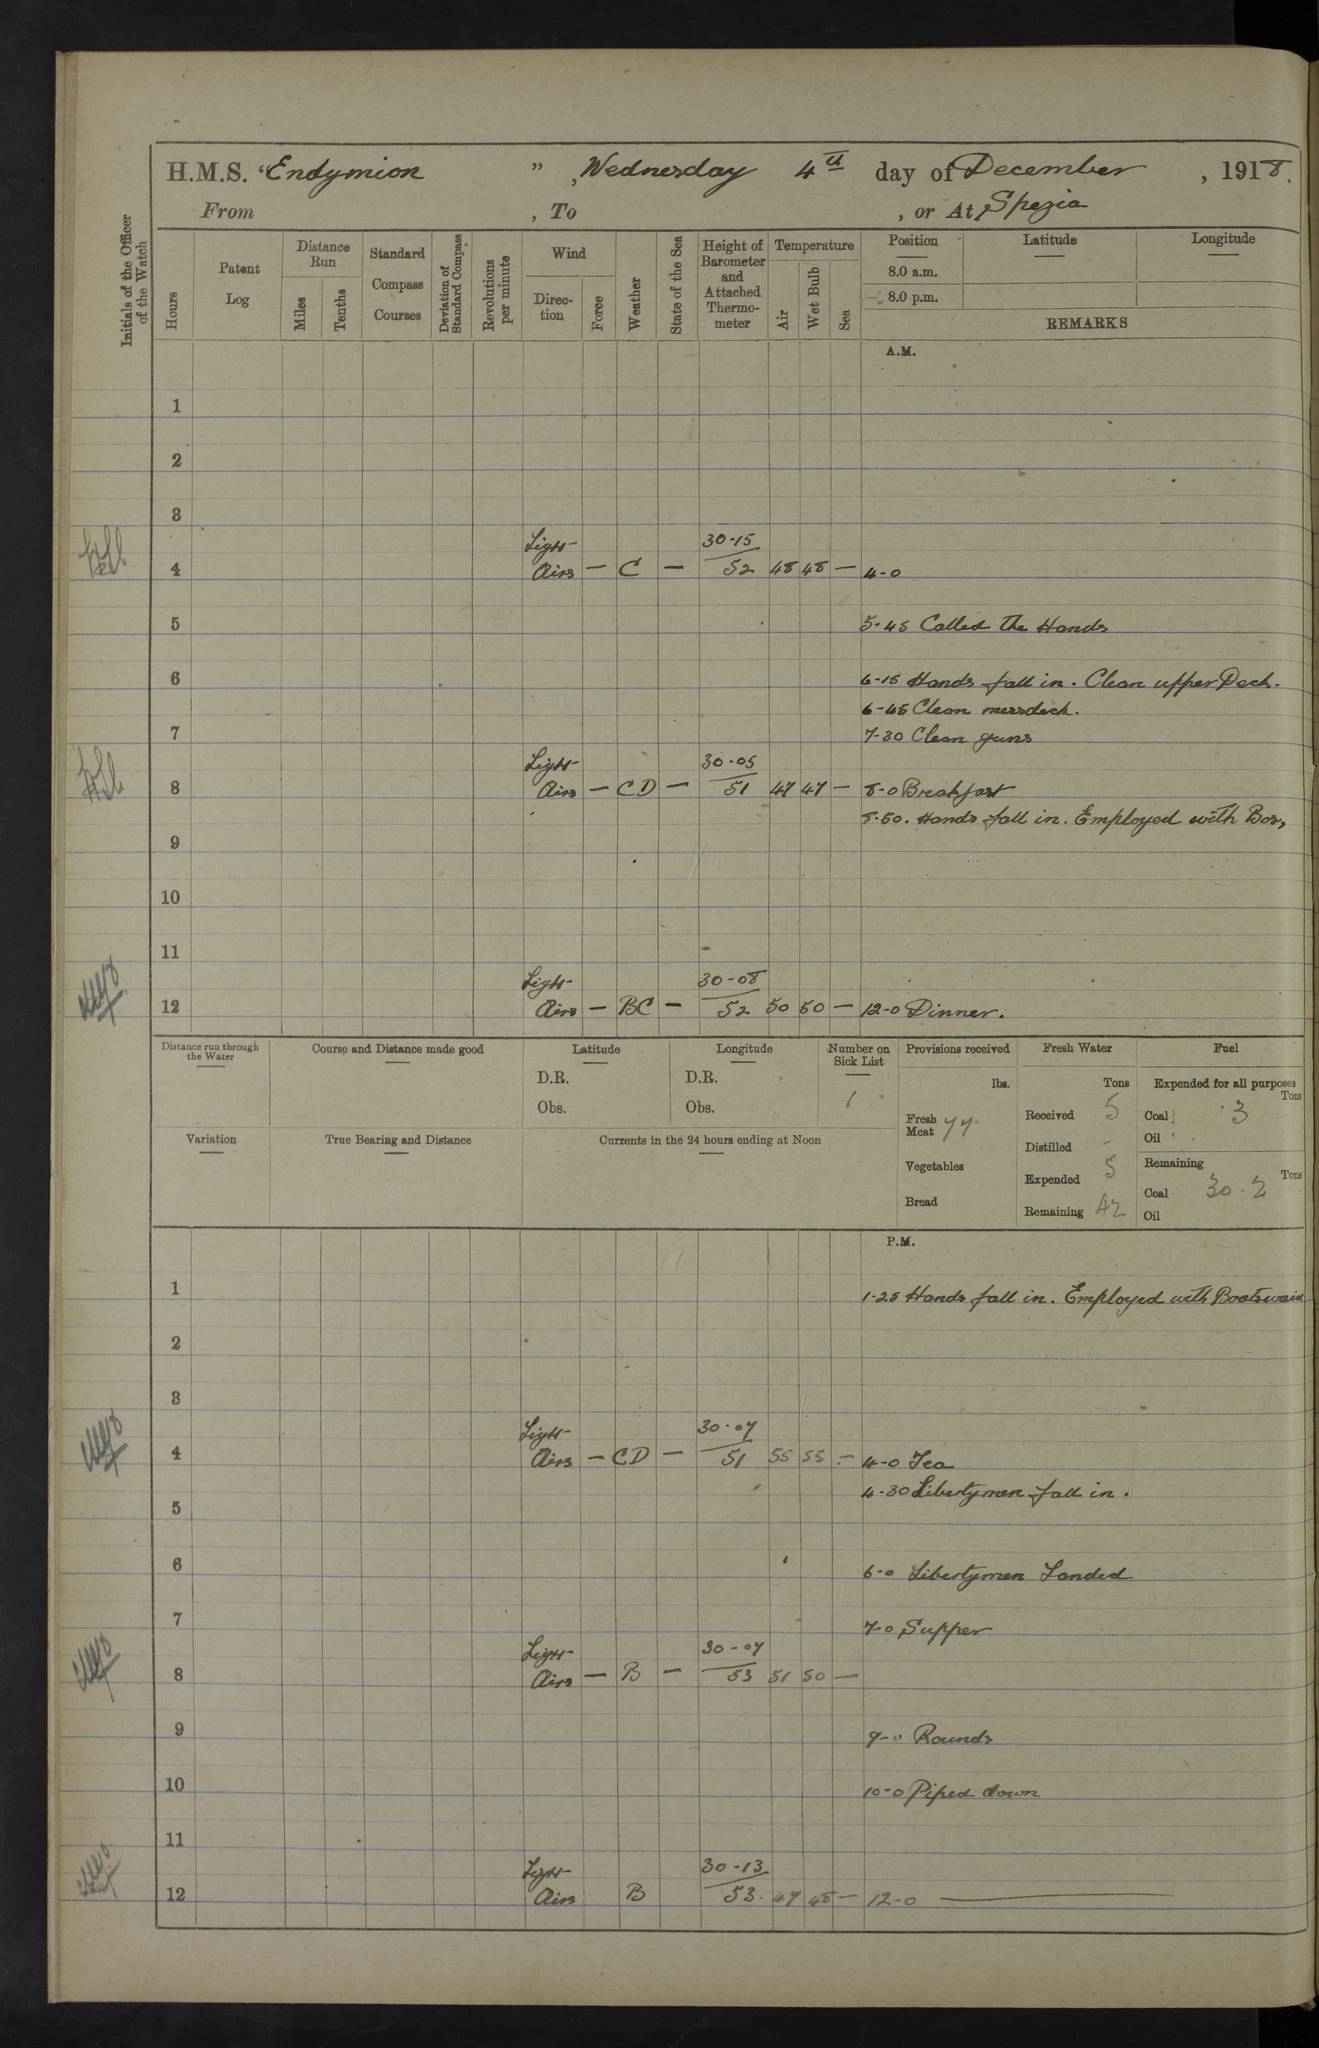 H.M.S. "Endymion", Wednesday 4th day of December, 1918.
From , To , or At Spezia
Initials of the Officer of the Watch
Hours
Patent Log
Distance Run
Miles
Tenths
Standard Compass Courses
Deviation of Standard Compass
Revolutions per minute
Wind
Direction
Force
Weather
State of the Sea
Height of Barometer and Attached Thermometer
Temperature
Air
Wet Bulb
Sea
Position
8.0 a.m.
8.0 p.m.
Latitude
Longitude
REMARKS
A.M.
1
2
3
Light 30-15
4 Airs — C — 52 48 48 — 4-0
5 5-45 Called the Hands
6 6-15 Hands fall in. Clean upper Deck.
6-45 Clean messdeck.
7 7-30 Clean guns
Light 30-05
8 Airs — CD — 51 47 47 — 8-0 Breakfast
8-50. Hands fall in. Employed with Bos,
9
10
11
Light 30-08
12 Airs — BC — 52 50 50 — 12-0 Dinner.
Distance run through the Water
Course and Distance made good
Latitude
D.R.
Obs.
Longitude
D.R.
Obs.
Number on Sick List
1
Provisions received
lbs.
Fresh Meat 77
Vegetables
Bread
Fresh Water
Tons
Received 5
Distilled -
Expended 5
Remaining 42
Fuel
Expended for all purposes
Tons
Coal 3
Oil
Remaining
Tons
Coal 30.2
Oil
Variation
True Bearing and Distance
Currents in the 24 hours ending at Noon
P.M.
1 1-25 Hands fall in. Employed with Boatswain
2
3
Light 30-07
4 Airs — CD — 51 55 55 — 4-0 Tea
4-30 Libertymen fall in.
5
6 6-0 Libertymen Landed
7 7-0 Supper
Light 30-07
8 Airs — B — 53 51 50 —
9 9-0 Rounds
10 10-0 Piped down
11
Light 30-13
12 Airs B 53. 49 48 — 12-0 —